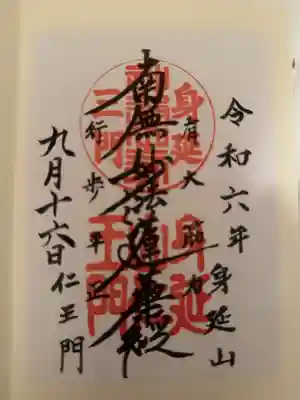 令和六年 身延山
有大筋力
南無妙法蓮華経
行歩平正
九月十六日 仁王門
身延
三門
身延
王門